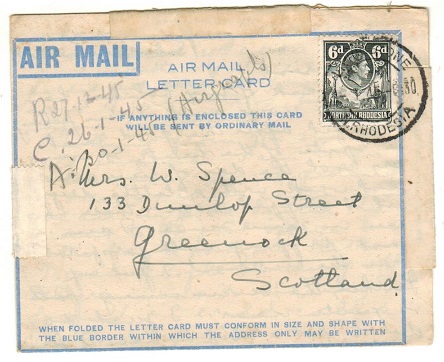 AIR MAIL
AIR MAIL
LETTER CARD
(Airgraph)
IF ANYTHING IS ENCLOSED THIS CARD
WILL BE SENT BY ORDINARY MAIL
6d 6d
NORTHERN RHODESIA
RHODESIA
R 27-12-45
C. 26-1-45
A.
Mrs. W. Spence
133 Dunlop Street
Greenock
Scotland
WHEN FOLDED THE LETTER CARD MUST CONFORM IN SIZE AND SHAPE WITH
THE BLUE BORDER WITHIN WHICH THE ADDRESS ONLY MAY BE WRITTEN